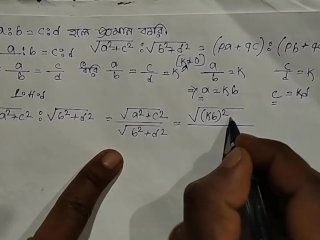 a:b = c:d হলে প্রমাণ করি:
a:b = c:d √a²+c² : √b²+d² = (pa+qc) : (pb+q
a/b = c/d ধরি a/b = c/d = K (K≠0) a/b = K c/d = K
L.H.S ⇒ a = Kb c = Kd
√a²+c² : √b²+d² = √a²+c² / √b²+d² = √(Kb)²